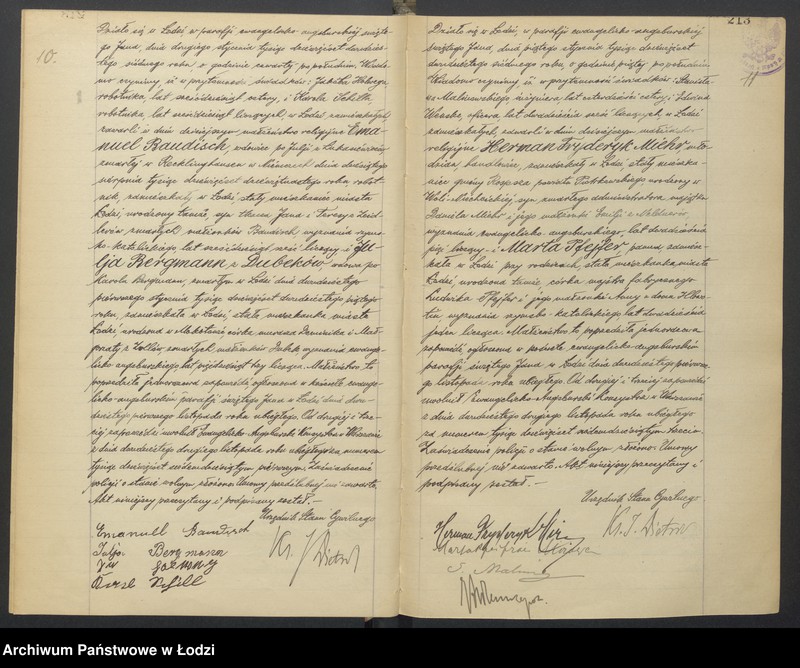 10.
Działo się w Łodzi w parafji ewangelicko-augsburskiej święte-
go Jana, dnia drugiego stycznia tysiąc dziewięćset dwudzies-
tego siódmego roku o godzinie czwartej po południu. Wiado-
mo czynimy iż w przytomności świadków: Jakóba
robotnika, lat sześćdziesiąt cztery, i Karola Schilla,
robotnika, lat sześćdziesiąt liczących, w Łodzi zamieszkałych
zawarli w dniu dzisiejszym małżeństwo religijne Ema-
nuel Baudisch, wdowiec po Julji z
zmarłej w Recklinghausen w Niemczech dnia dwudziestego
sierpnia tysiąc dziewięćset dziewiętnastego roku, robot-
nik, zamieszkały w Łodzi, stały mieszkaniec miasta
Łodzi, urodzony tamże, syn Jana i Terezy
zmarłych małżonków Baudisch, wyznania rzyms-
ko-katolickiego, lat sześćdziesiąt sześć liczący i Ju-
lja Bergmann z Dubeków, wdowa po
Karolu Bergmann, zmarłym w Łodzi dnia dwudziestego
pierwszego stycznia tysiąc dziewięćset dwudziestego piątego
roku, zamieszkała w Łodzi, stała mieszkanka miasta
Łodzi, urodzona w córka murarza Dominika i
z zmarłych małżonków Dubek, wyznania ewange-
licko-augsburskiego, lat pięćdziesiąt trzy licząca. Małżeństwo to
poprzedziła jednorazowa zapowiedź, ogłoszona w kościele ewange-
licko-augsburskim parafji świętego Jana w Łodzi dnia dwu-
dziestego pierwszego listopada roku ubiegłego. Od drugiej i trze-
ciej zapowiedzi uwolnił Ewangelicko-Augsburski Konsystorz w Warszawie
z dnia dwudziestego drugiego listopada roku ubiegłego za numerem
tysiąc dziewięćset siedemdziesiątym pierwszym. Zaświadczenie
policji o stanie wolnym złożono. Umowy przedślubnej nie zawarto.
Akt niniejszy przeczytany i podpisany został.—
Urzędnik Stanu Cywilnego
Emanuell Baudisch
Julja Bergmann
Karol Schill
Ks. J. Dietrich
213
11
Działo się w Łodzi, w parafji ewangelicko-augsburskiej
świętego Jana, dnia piątego stycznia tysiąc dziewięćset
dwudziestego siódmego roku, o godzinie piątej po południu.
Wiadomo czynimy, iż w przytomności świadków: Stanisła-
wa Malinowskiego, inżyniera, lat czterdzieści cztery, i Edwina
oficera, lat dwadzieścia sześć liczących, w Łodzi
zamieszkałych, zawarli w dniu dzisiejszym małżeństwo
religijne Herman Fryderyk Miehr, mło-
dzieniec, handlowiec, zamieszkały w Łodzi, stały mieszka-
niec gminy powiatu Piotrkowskiego, urodzony w
Woli syn zmarłego administratora majątku
Daniela Miehr i jego małżonki z
wyznania ewangelicko-augsburskiego, lat dwadzieścia
pięć liczący — i Marta Pfejfer, panna, zamiesz-
kała w Łodzi przy rodzicach, stała mieszkanka miasta
Łodzi, urodzona tamże, córka majstra fabrycznego
Ludwika Pfejfer i jego małżonki Anny z domu
wyznania rzymsko-katolickiego, lat dwadzieścia
jeden licząca. Małżeństwo to poprzedziła jednorazowa
zapowiedź, ogłoszona w kościele ewangelicko-augsburskim
parafji świętego Jana w Łodzi dnia dwudziestego pierwsze-
go listopada roku ubiegłego. Od drugiej i trzeciej zapowiedzi
uwolnił Ewangelicko-Augsburski Konsystorz w Warszawie
z dnia dwudziestego drugiego listopada roku ubiegłego
za numerem tysiąc dziewięćset siedemdziesiątym
Zaświadczenie policji o stanie wolnym złożono. Umowy
przedślubnej nie zawarto. Akt niniejszy przeczytany i
podpisany został.—
Urzędnik Stanu Cywilnego
Herman Fryderyk
Marta
S. Malin
Ks. J. Dietrich
Archiwum Państwowe w Łodzi